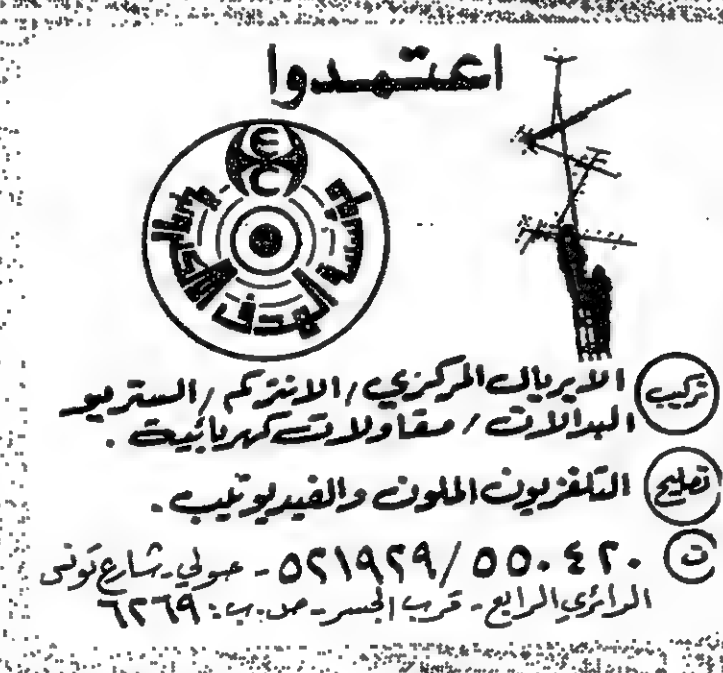 اعتمدوا
الهدف
تركيب
الايريال المركزي / الانتركم / الستريو
البدالات / مقاولات كهربائية .
تصليح
التلفزيون الملون والفيديو تيب .
ت
٥٥٠٤٢٠ / ٥٢١٩٢٩ - حولي - شارع تونس
الدائري الرابع - قرب الجسر - ص . ب : ٦٢٦٩